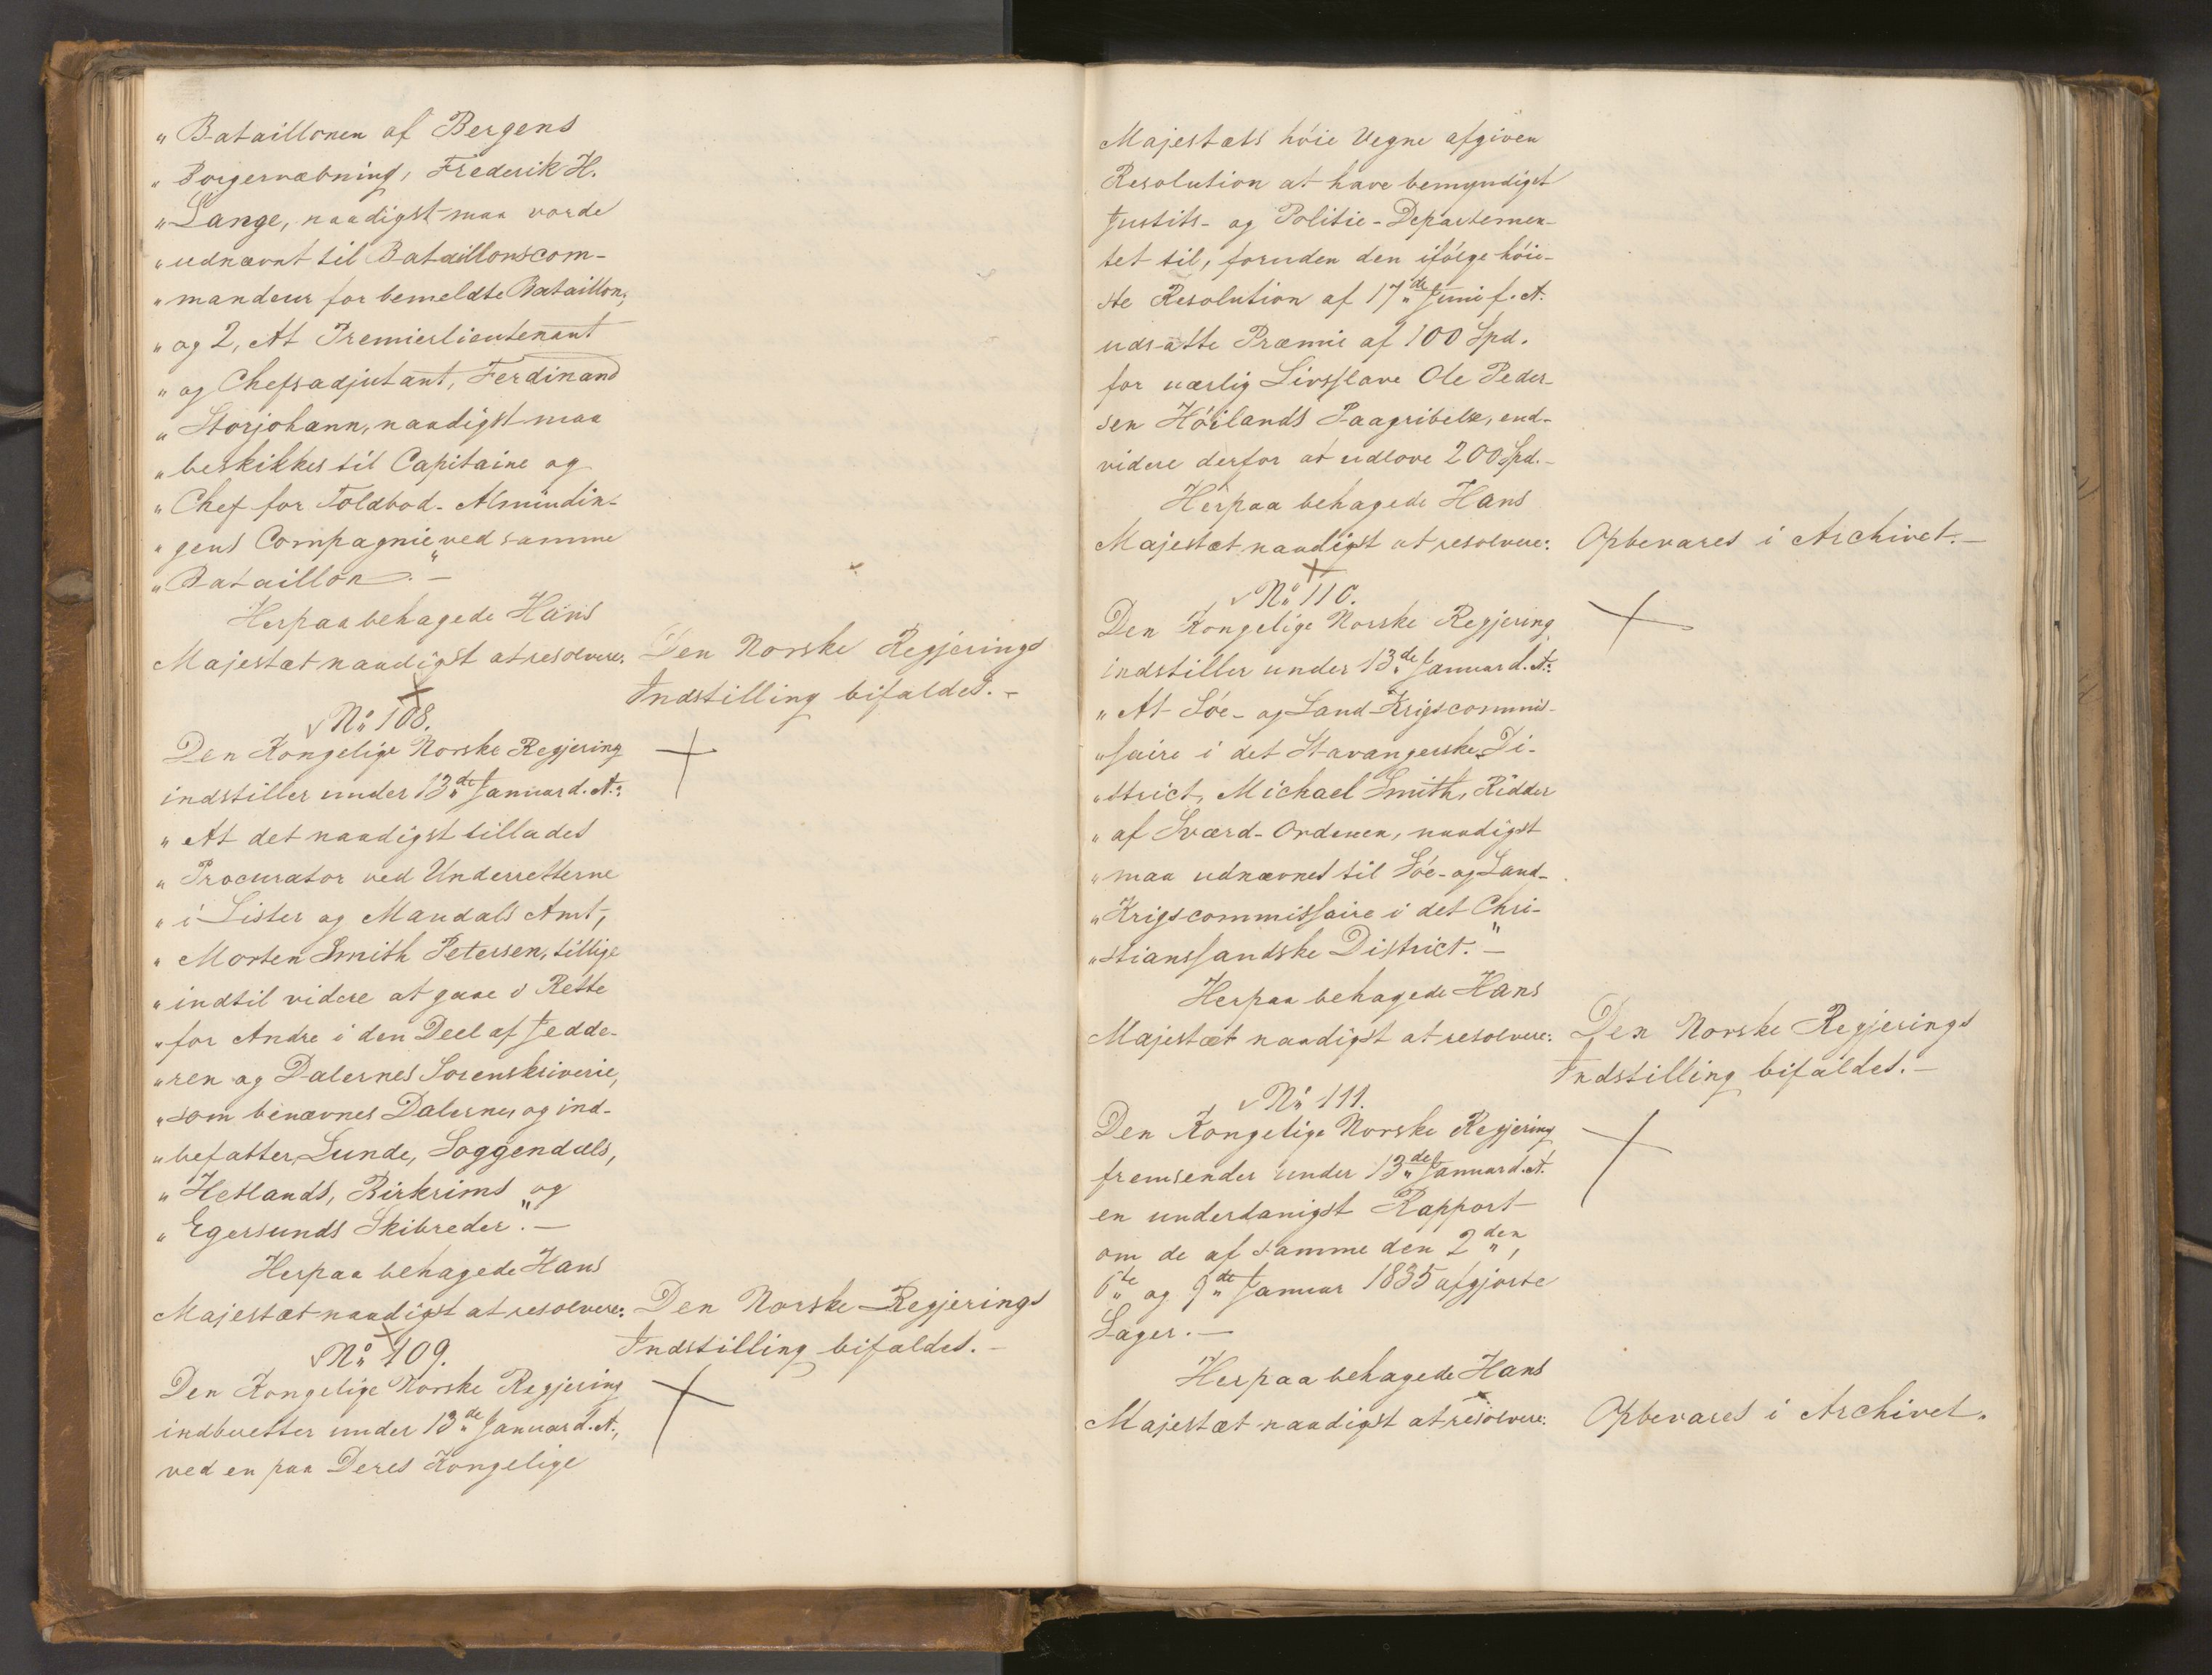 „ Bataillonen af Bergens
„ Borgervæbning, Frederik H.
„ Lange, naadigst maa vorde
„ udnævnt til Bataillonscom-
„ mandeur for bemeldte Bataillon;
„ og 2, At Premierlieutenant
„ og Chefsadjutant, Ferdinand
„ Storjohann, naadigst maa
„ beskikkes til Capitaine og
„ Chef for Toldbod-Almindin-
„ gens Compagnie ved samme
„ Bataillon.“ —
Herpaa behagede Hans
Majestæt naadigst at resolvere:
Den Norske Regjerings
Indstilling bifaldes. –
No 108.
Den Kongelige Norske Regjering
indstiller under 13de Januar d. A.:
„ At det naadigst tillades
„ Procurator ved Underretterne
„ i Lister og Mandals Amt,
„ Morten Smith Petersen, tillige
„ indtil videre at gaae i Rette
„ for Andre i den Deel af Jedde-
„ ren og Dalernes Sorenskriverie,
„ som benævnes Dalerne, og ind-
„ befatter Lunde, Soggendals,
„ Hetlands, Birkrims og
„ Egersunds Skibreder“. —
Herpaa behagede Hans
Majestæt naadigst at resolvere:
Den Norske Regjerings
Indstilling bifaldes. –
No 109.
Den Kongelige Norske Regjering
indberetter under 13de Januar d. A.,
ved en paa Deres Kongelige
Majestæts höie Vegne afgiven
Resolution at have bemyndiget
Justits- og Politie-Departemen-
tet til, foruden den ifölge höie-
ste Resolution af 17de Juni f. A.
udsatte Præmie af 100 Spd.
for uærlig Livsslave Ole Peder-
sen Höilands Paagribelse, end-
videre derfor at udlove 200 Spd. –
Herpaa behagede Hans
Majestæt naadigst at resolvere:
Opbevares i Archivet. –
No 110.
Den Kongelige Norske Regjering
indstiller under 13de Januar d. A.:
„ At Söe- og Land-Krigscommis-
„ saire i det Stavangerske Di-
„ strict, Michael Smith, Ridder
„ af Sværd-Ordenen, naadigst
„ maa udnævnes til Söe- og Land-
„ Krigscommissaire i det Chri-
„ stianssandske District.“ –
Herpaa behagede Hans
Majestæt naadigst at resolvere:
Den Norske Regjerings
Indstilling bifaldes. –
No 111.
Den Kongelige Norske Regjering
fremsender under 13de Januar d. A.
en underdanigst Rapport
om de af samme den 2den,
6te og 9de Januar 1835 afgjorte
Sager. —
Herpaa behagede Hans
Majestæt naadigst at resolvere:
Opbevares i Archivet.